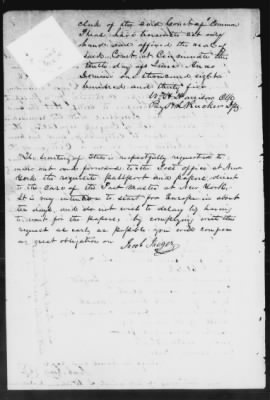 clerk of the said Court of Common
Pleas have hereunto set my
hand and affixed the seal of
said Court, at Cincinnati the
tenth day of June Anno
Domini one thousand eight
hundred and thirty five
Wm H Harrison Clk
The Secretary of State is respectfully requested to
make out and forward to the Post office at New
York the requisite passport and papers direct
to the Care of the Post Master at New York.
It is my intention to start for Europe in about
ten days, and do not wish to delay by having
to wait for the papers; by complying with this
request as early as possible you will confer
as great obligation on